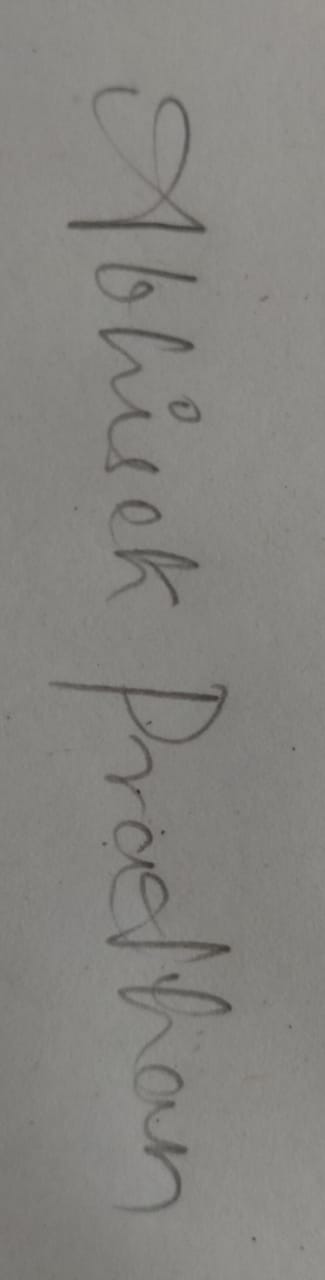 Abhisek Pradhan